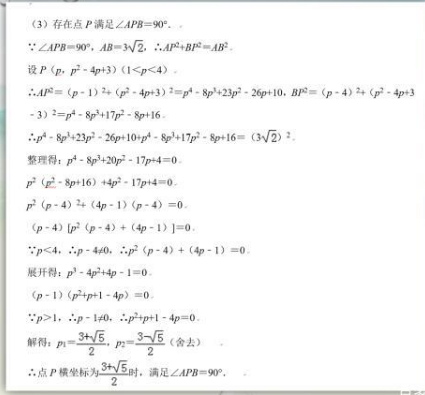 （3）存在点 P 满足∠APB=90°．
∵∠APB=90°，AB=3√2，∴AP²+BP²=AB²．
设 P（p，p²﹣4p+3）（1＜p＜4）．
∴AP²=（p﹣1）²+（p²﹣4p+3）²=p⁴﹣8p³+23p²﹣26p+10，BP²=（p﹣4）²+（p²﹣4p+3
﹣3）²=p⁴﹣8p³+17p²﹣8p+16．
∴p⁴﹣8p³+23p²﹣26p+10+p⁴﹣8p³+17p²﹣8p+16=（3√2）²．
整理得：p⁴﹣8p³+20p²﹣17p+4=0．
p²（p²﹣8p+16）+4p²﹣17p+4=0．
p²（p﹣4）²+（4p﹣1）（p﹣4）=0．
（p﹣4）[p²（p﹣4）+（4p﹣1）]=0．
∵p＜4，∴p﹣4≠0，∴p²（p﹣4）+（4p﹣1）=0．
展开得：p³﹣4p²+4p﹣1=0．
（p﹣1）（p²+p+1﹣4p）=0．
∵p＞1，∴p﹣1≠0，∴p²+p+1﹣4p=0．
解得：p₁=(3+√5)/2，p₂=(3-√5)/2（舍去）
∴点 P 横坐标为(3+√5)/2时，满足∠APB=90°．